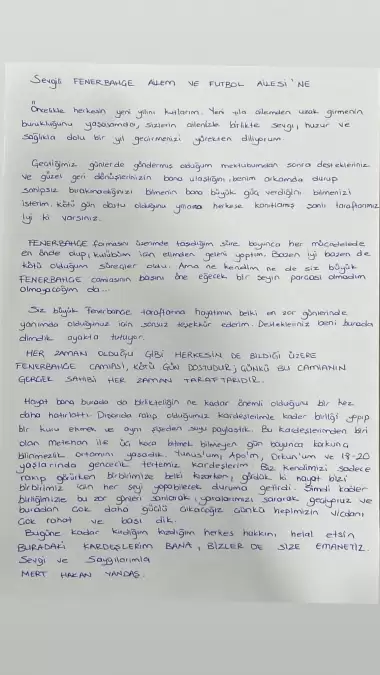 Sevgili FENERBAHÇE AİLEM VE FUTBOL AİLESİ'NE
Öncelikle herkesin yeni yılını kutlarım. Yeni yıla ailemden uzak girmenin
burukluğunu yaşasamda, sizlerin ailenizle birlikte sevgi, huzur ve
sağlıkla dolu bir yıl geçirmenizi yürekten diliyorum.
Geçtiğimiz günlerde göndermiş olduğum mektubumdan sonra destekleriniz
ve güzel geri dönüşlerinizin bana ulaştığını, benim arkamda durup
sahipsiz bırakmadığınızı bilmenin bana büyük güç verdiğini bilmenizi
isterim. Kötü gün dostu olduğunu yine herkese kanıtlamış şanlı taraftarımız
iyi ki varsınız.
FENERBAHÇE formasını üzerimde taşıdığım süre boyunca her mücadelede
en önde olup, kulübüm için elimden geleni yaptım. Bazen iyi bazen de
kötü olduğum süreçler oldu. Ama ne kendim ne de siz büyük
FENERBAHÇE camiasının başını öne eğecek bir şeyin parçası olmadım
olmayacağım da...
Siz büyük Fenerbahçe taraftarına hayatımın belki en zor günlerinde
yanımda olduğunuz için sonsuz teşekkür ederim. Destekleriniz beni burada
dimdik ayakta tutuyor.
HER ZAMAN OLDUĞU GİBİ HERKESİN DE BİLDİĞİ ÜZERE
FENERBAHÇE CAMİASI, KÖTÜ GÜN DOSTUDUR; ÇÜNKÜ BU CAMİANIN
GERÇEK SAHİBİ HER ZAMAN TARAFTARIDIR.
Hayat bana burada da birlikteliğin ne kadar önemli olduğunu bir kez
daha hatırlattı. Dışarıda rakip olduğumuz kardeşlerimle kader birliği yapıp
bir kuru ekmek ve aynı şişeden suyu paylaştık. Bu kardeşlerimden biri
olan Metehan ile üç koca bitmek bilmeyen gün boyunca korkunç
bilinmezlik ortamını yaşadık. Yunus'um, Apo'm, Orkun'um ve 18-20
yaşlarında gencecik tertemiz kardeşlerim Biz kendimizi sadece
rakip görürken birbirimize belki kızarken, gördük ki hayat bizi
birbirimiz için her şeyi yapabilecek duruma getirdi. Şimdi kader
birliğimizle bu zor günleri sarılarak, yaralarımızı sararak geçiyoruz ve
buradan çok daha güçlü çıkacağız çünkü hepimizin vicdanı
çok rahat ve başı dik.
Bugüne kadar kırdığım kızdığım herkes hakkını helal etsin
BURADAKİ KARDEŞLERİM BANA, BİZLER DE SİZE EMANETİZ.
Sevgi ve Saygılarımla
MERT HAKAN YANDAŞ.